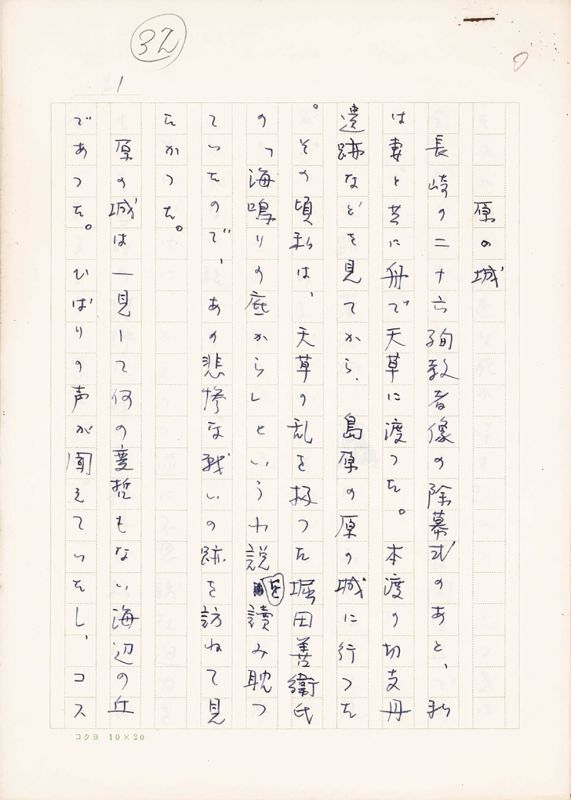 32
1
原の城
長崎の二十六殉教者像の除幕式のあと、私
は妻と共に舟で天草に渡つた。本渡の切支丹
遺跡などを見てから、島原の原の城に行つた
。その頃私は、天草の乱を扱つた堀田善衛氏
の「海鳴りの底から」という小説を讀み耽つ
ていたので、あの悲惨な戦いの跡を訪ねて見
たかつた。
原の城は一見して何の変哲もない海辺の丘
であつた。ひばりの声が聞えていたし、コス
コクヨ 10×20